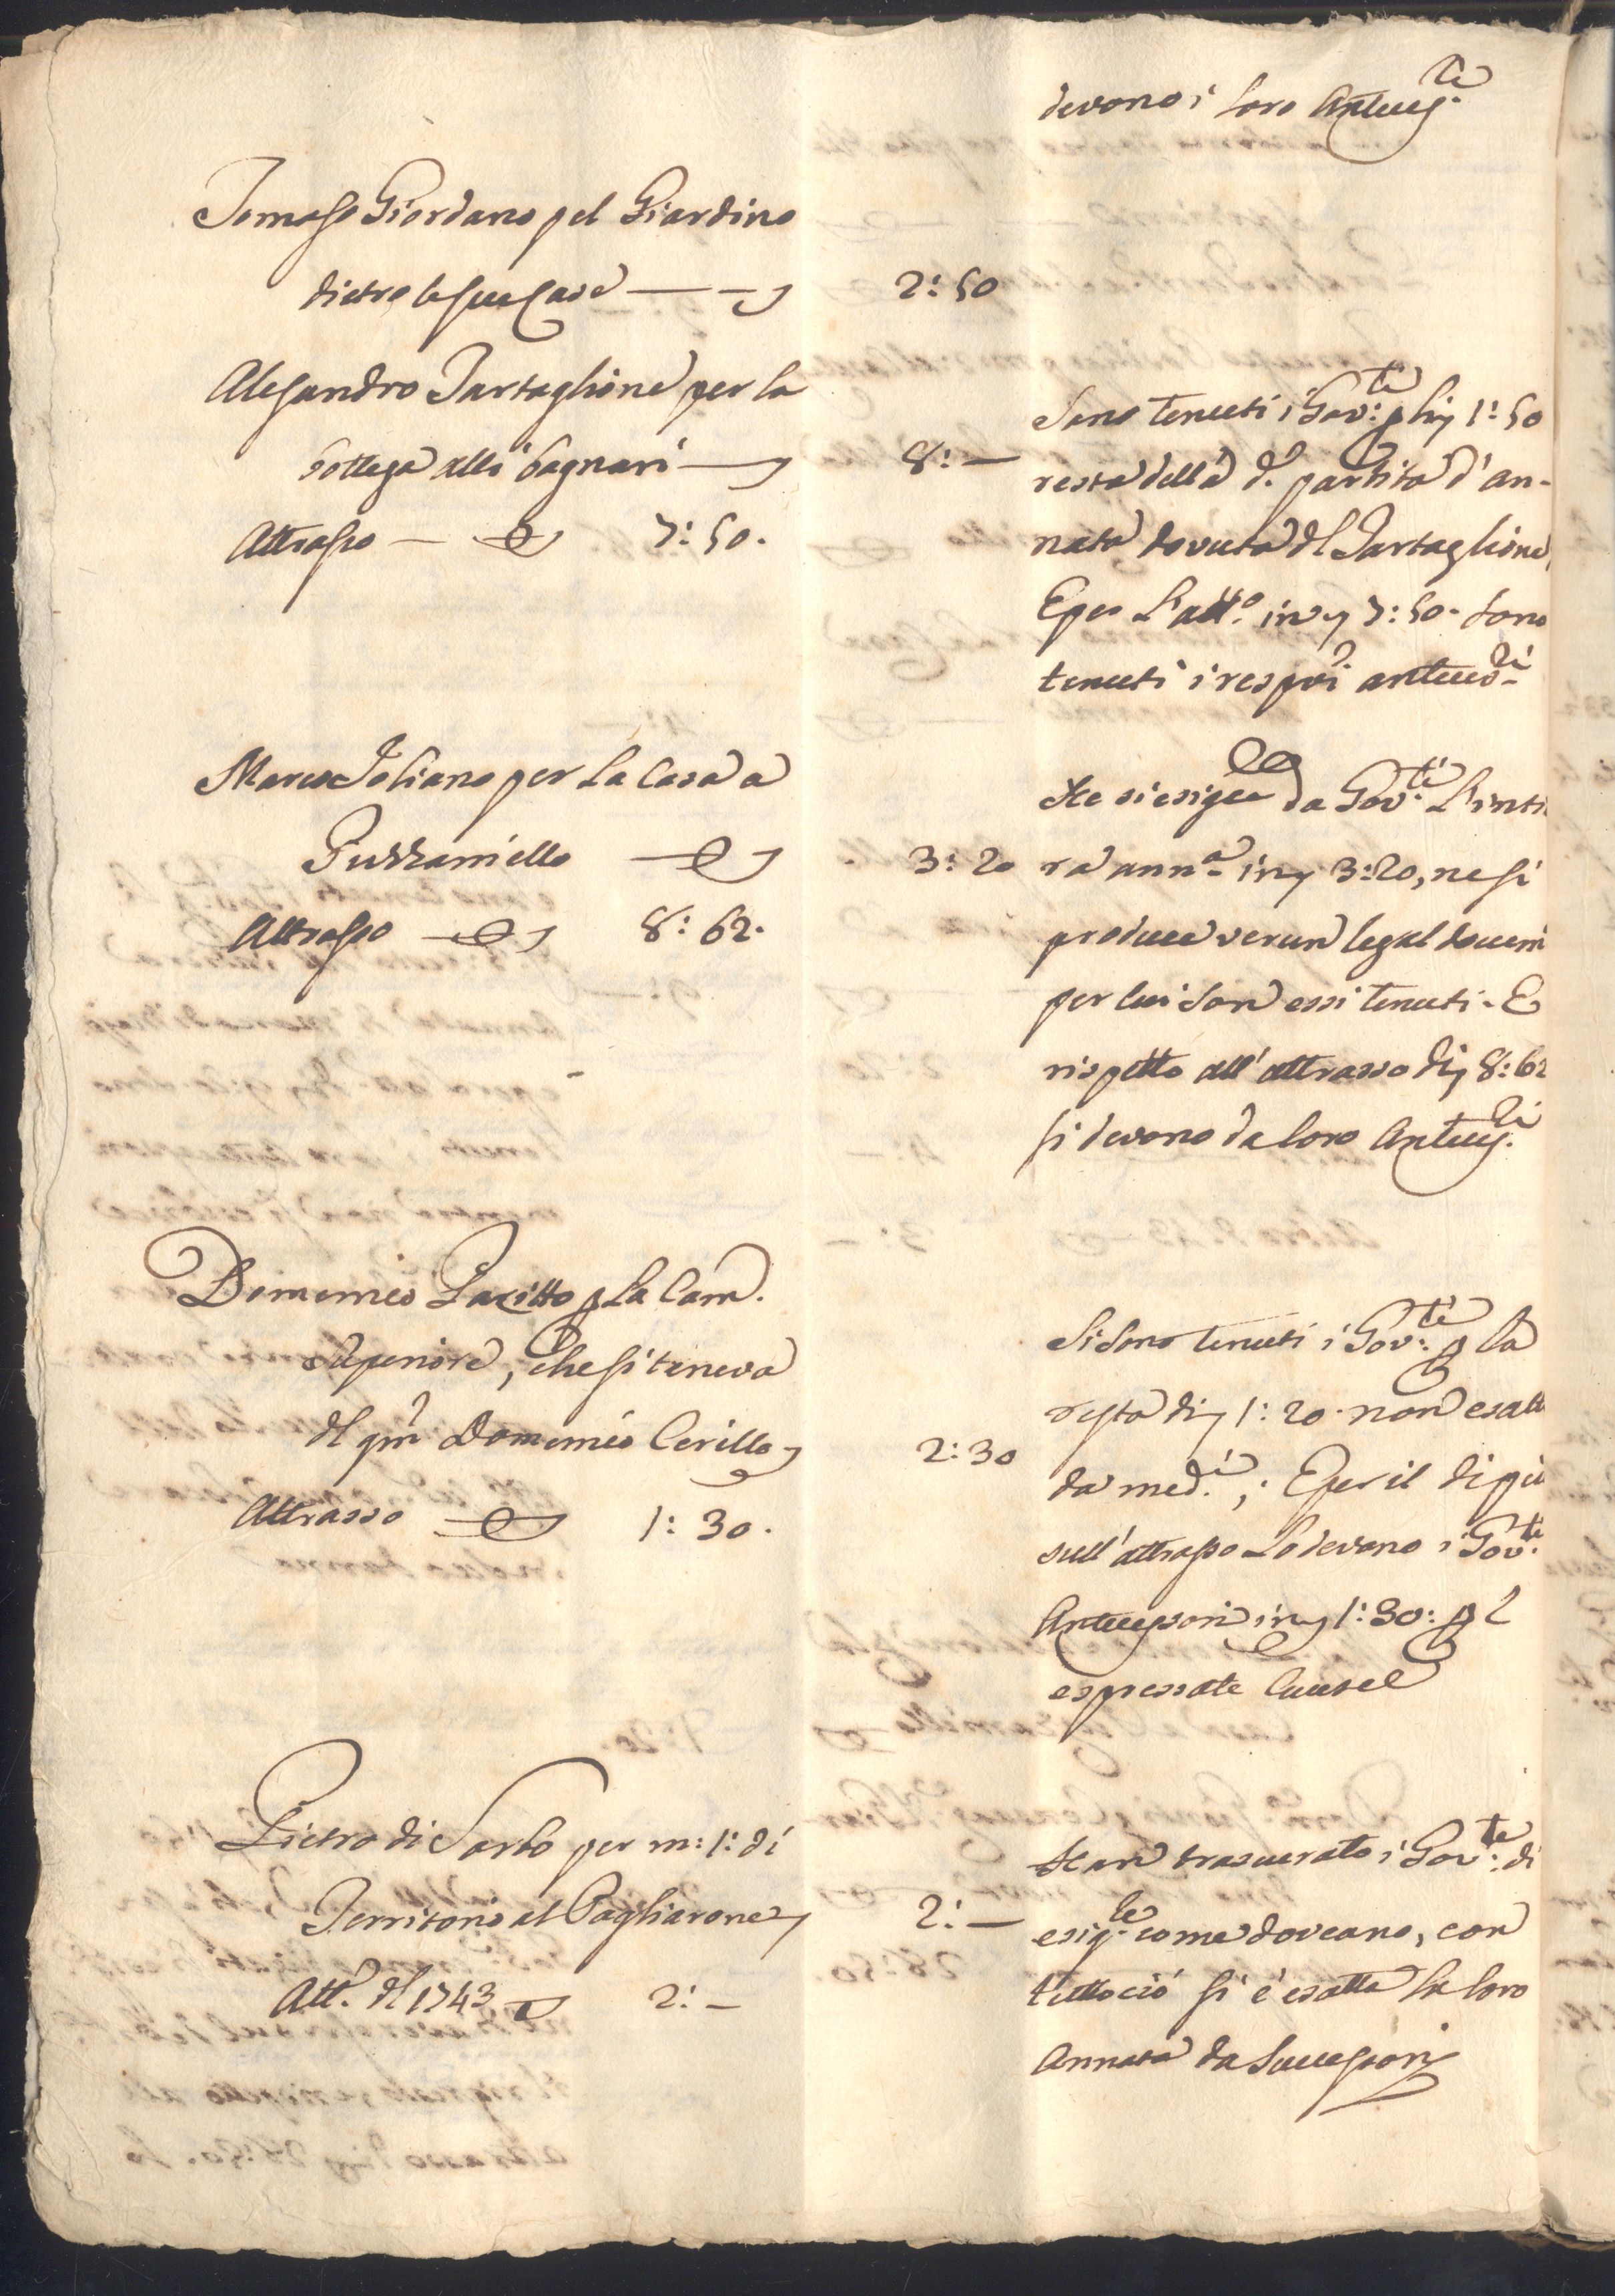 devono i loro Antecess.ti
Tomaso Giordano pel Giardino
dietro le sue Case 2: 50
Alesandro Tartaglione per la
bottega alli bagnari 8: —
Attrasso 7: 50.
Sono tenuti i Gov:ti p li 1: 50
resta della d.a partita d' an-
nata dovuta dl Tartaglione,
E per l'att.o in 7: 50. sono
tenuti i respvi antecess.ri
Marco Joliano per la Casa a
Puzzaniello 3: 20
Attrasso 8: 62.
Ne si esigeè da Gov:ti l'inti
ra ann.a in 3: 20, ne si
produce verun legal docum
per cui son essi tenuti - E
rispetto all' attrasso di 8: 62
si devono da loro Antecess.ri
Domenico Paritto p la Cam.
superiore, che si teneva
dl qm Domenico Cerillo 2: 30
Attrasso 1: 30.
Si sono tenuti i Gov:ti p la
resta di 1: 20. non esatt
da med.i; E per il di piu
sull' attrasso lo devono i Gov:ti
Antecessori in 1: 30: p l
espressate Cause
Pietro di Sarbo per m: 1: di
Territorio al Pagliarone 2: —
Att.o dl 1743 2: —
Han trascurato i Gov:ti di
esig.le come doveano, con
tuttociò si è esatta la loro
Annata da Successori